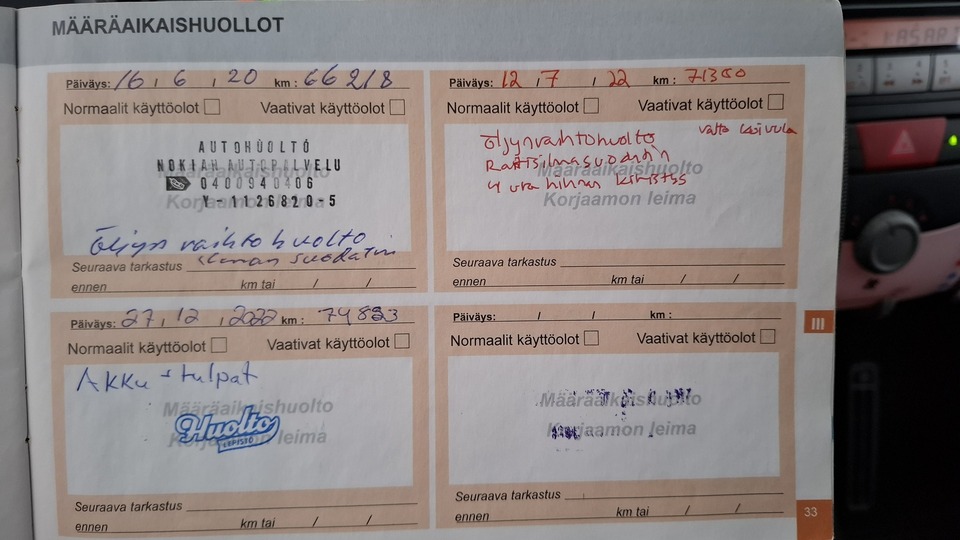 MÄÄRÄAIKAISHUOLLOT
Päiväys: 16 , 6 , 20 km : 66218
Normaalit käyttöolot Vaativat käyttöolot
AUTOHUOLTO
NOKIAN AUTOPALVELU
0400940406
Y-1126820-5
Määräaikaishuolto
Korjaamon leima
Öljyn vaihto huolto
ilman suodatin
Seuraava tarkastus
ennen km tai / /
Päiväys: 12 , 7 / 22 km : 71300
Normaalit käyttöolot Vaativat käyttöolot
Öljynvaihtohuolto
Raitisilmasuodatin
4 ura hihnan kiristys
Määräaikaishuolto
Korjaamon leima
Seuraava tarkastus
ennen km tai / /
Päiväys: 27 , 12 , 2022 km : 74823
Normaalit käyttöolot Vaativat käyttöolot
Akku + tulpat
Määräaikaishuolto
Huolto
Korjaamon leima
Seuraava tarkastus
ennen km tai / /
Päiväys: / / km :
Normaalit käyttöolot Vaativat käyttöolot
Määräaikaishuolto
Korjaamon leima
Seuraava tarkastus
ennen km tai / /
III
33